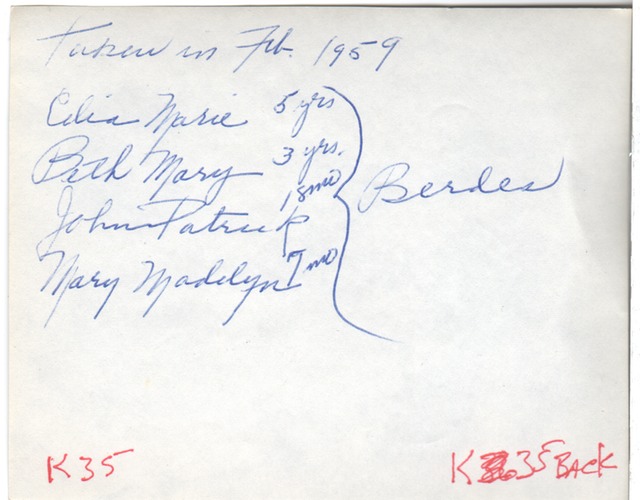 Taken in Feb. 1959
Celia Marie 5 yrs
Beth Mary 3 yrs.
John Patrick 18 mo
Mary Madelyn 7 mo
Berdes
K 35
K 35 BACK